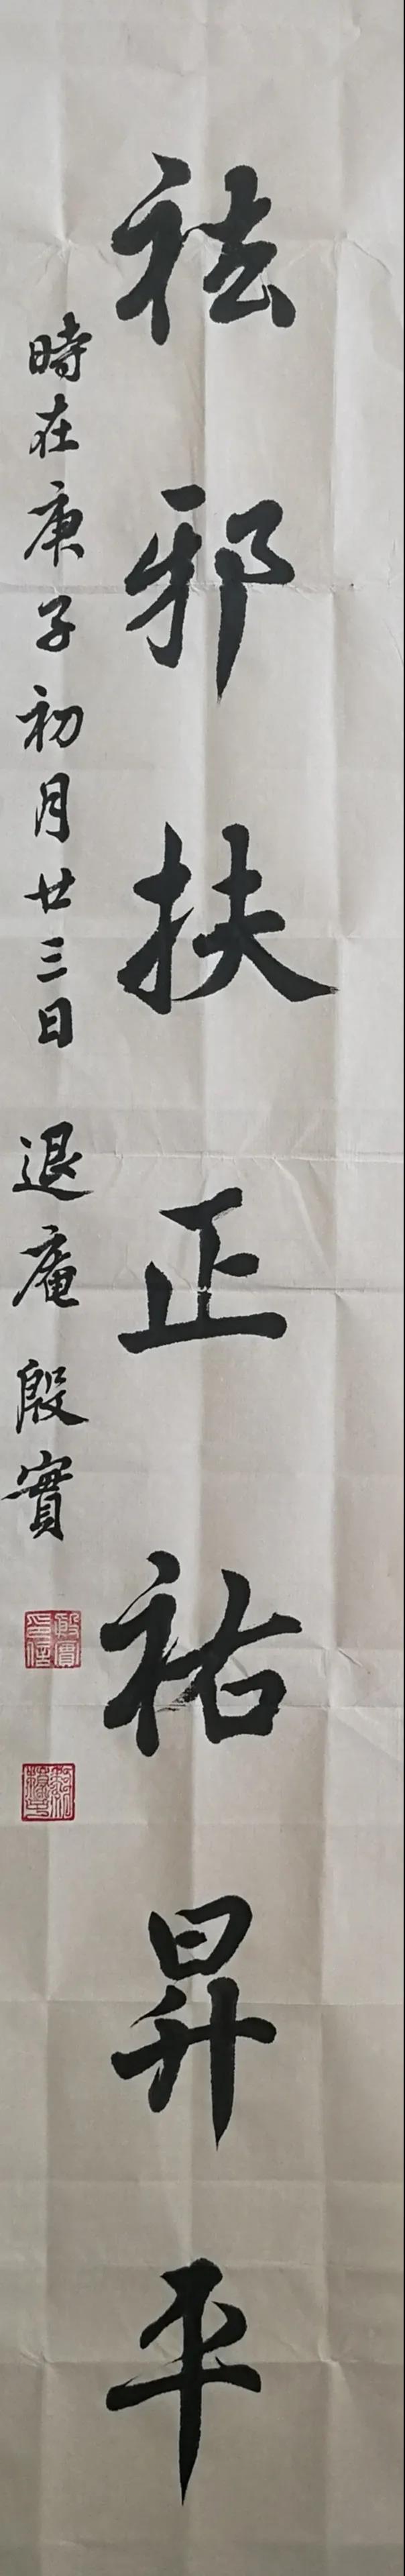 祛邪扶正祐昇平
時在庚子初月廿三日 退庵 殷實
殷實印信